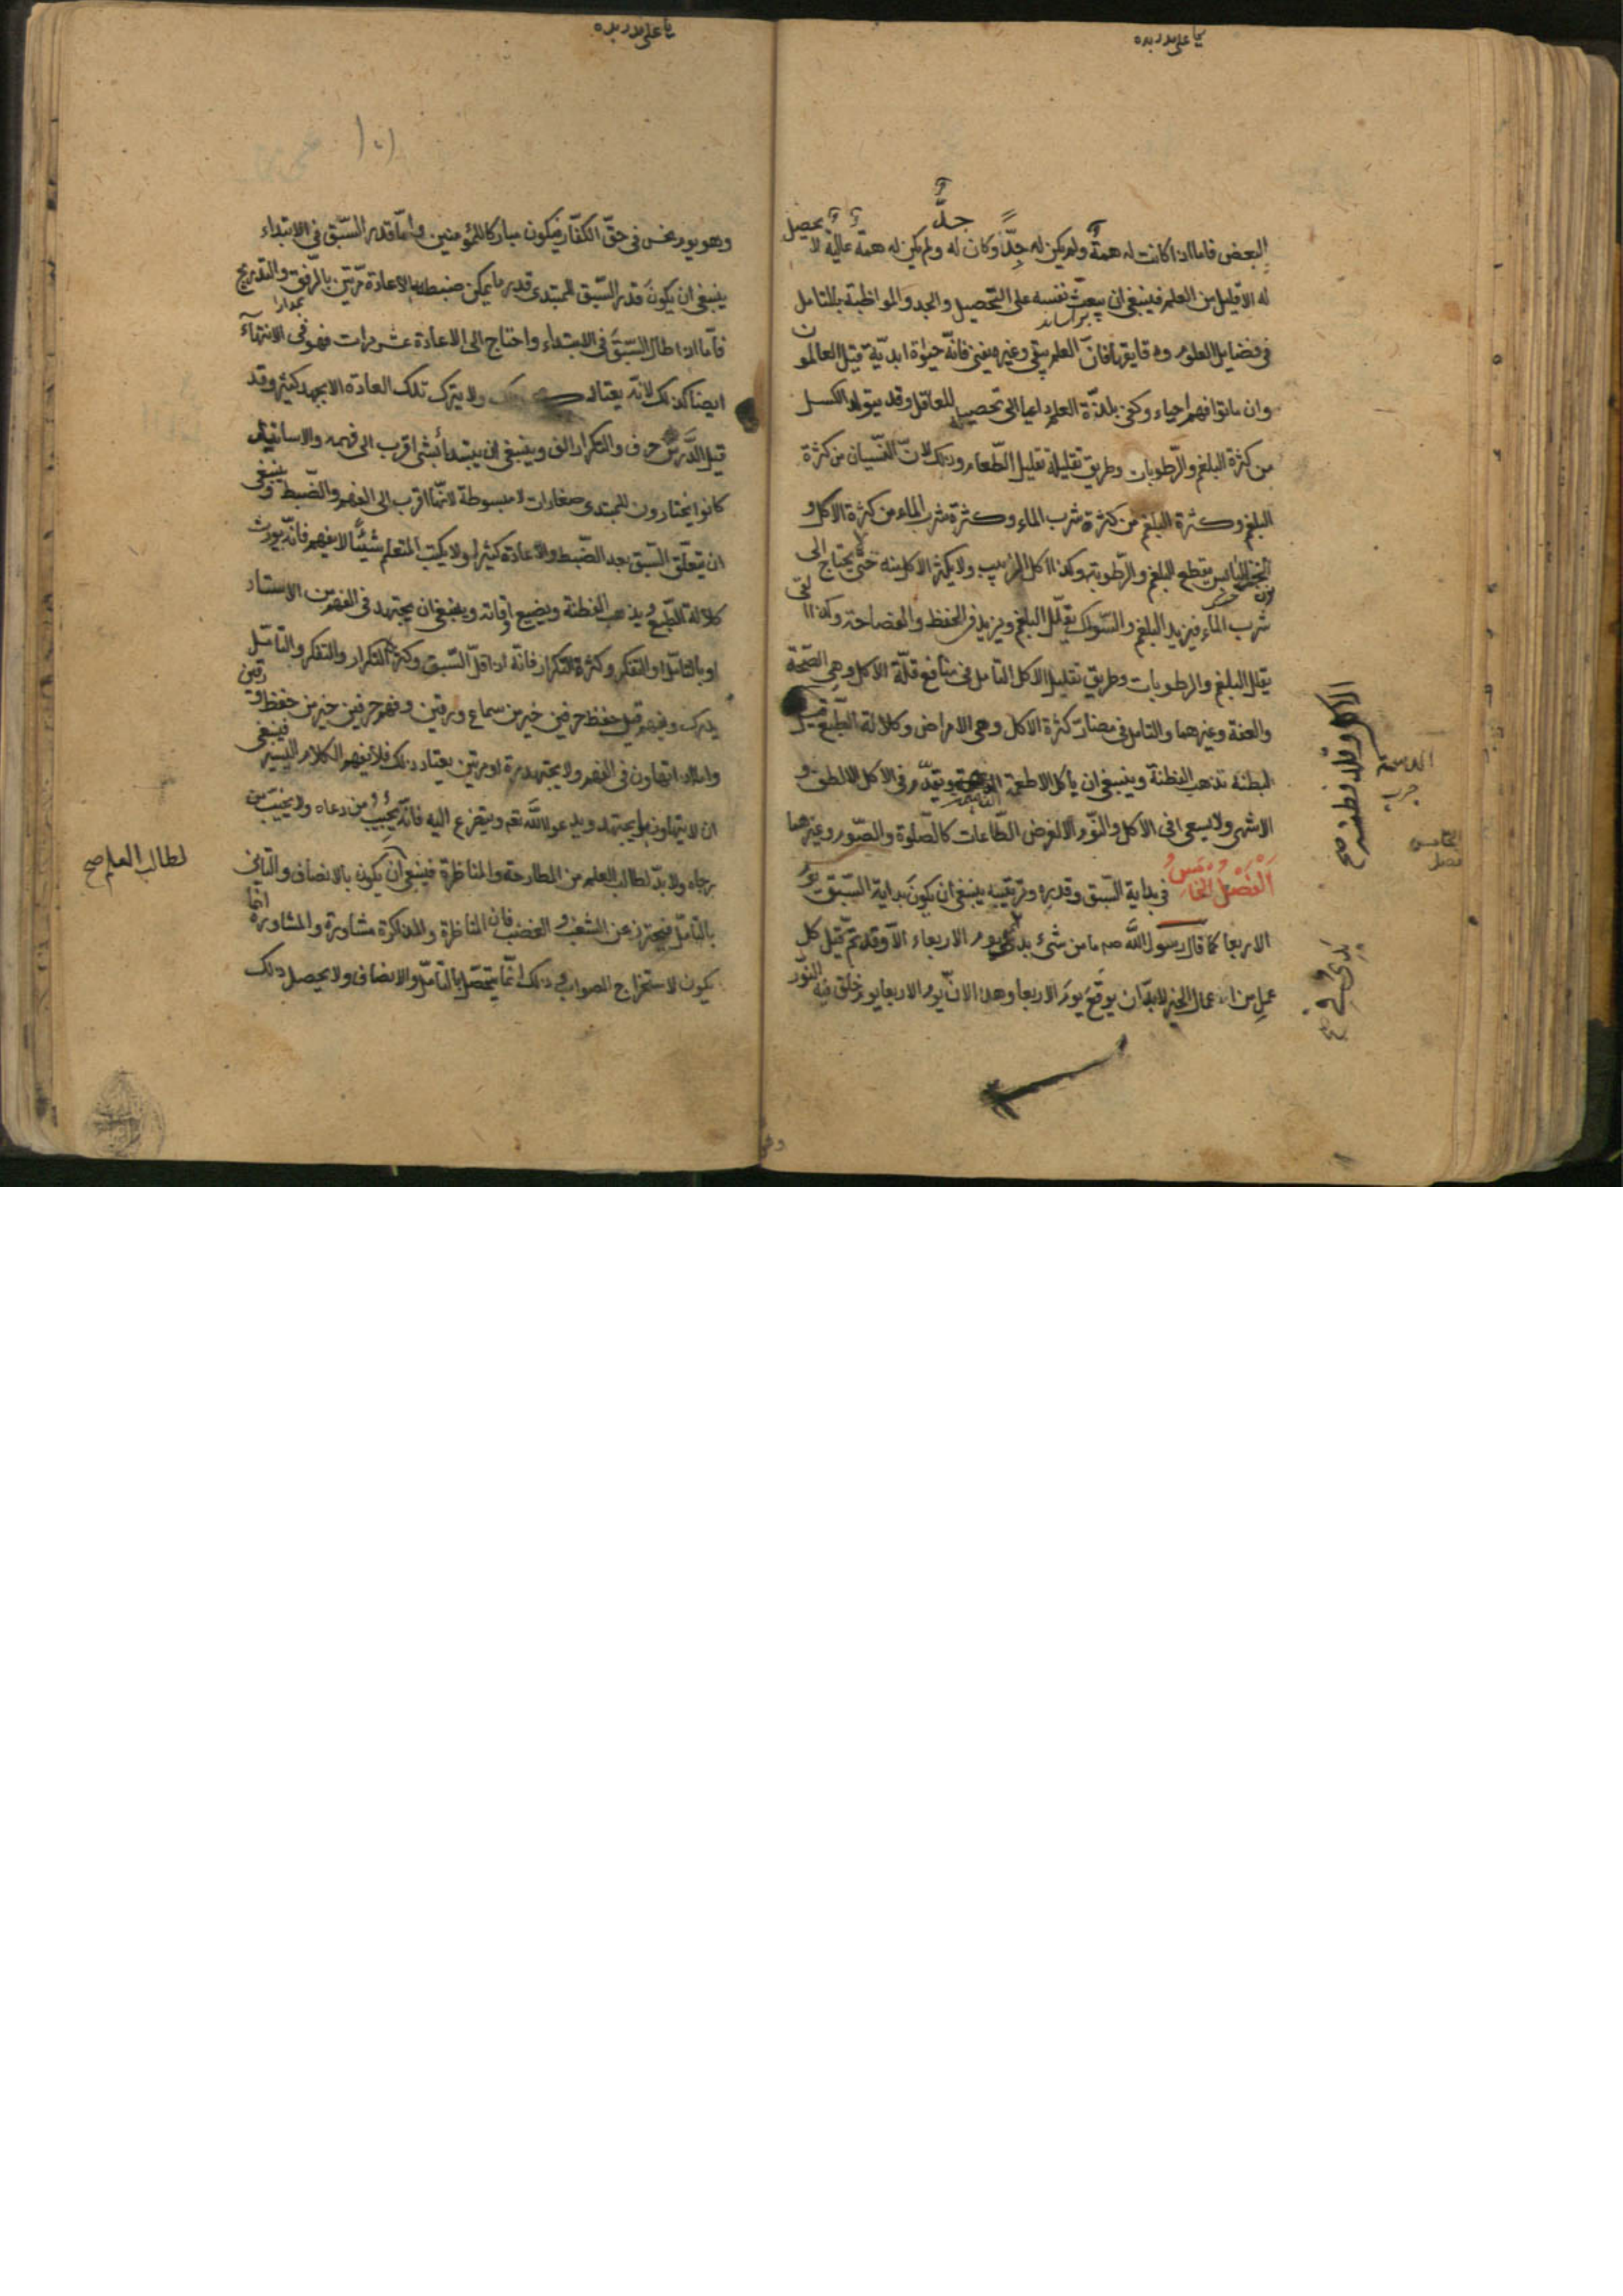 البعض فاما اذا كانت له همة ولم يكن له جدّ او كان له جدّ ولم يكن له همة عالية لا يحصل
له الا قليل من العلم فينبغى ان يبعث نفسه على التحصيل والجد والمواظبة بالتامل
فى فضايل العلوم ودقايقها فانّ العلم يبقى وغيره يفنى فانّه حيوة ابديّة قيل العالمون
وان ماتوا فهم احياء وكفى بلذّة العلم داعيا الى تحصيله للعاقل وقد يتولد الكسل
من كثرة البلغم والرّطوبات وطريق تقليله تقليل الطّعام وذلك لانّ النّسيان من كثرة
البلغم وكثرة البلغم من كثرة شرب الماء وكثرة شرب الماء من كثرة الاكل و
الخبز اليابس يقطع البلغم والرّطوبة وكذا اكل الزبيب ولا يكثر الاكل منه حتى لا يحتاج الى
شرب الماء فيزيد البلغم والسّواك يقلّل البلغم ويزيد فى الحفظ والفصاحة وكذا القى
يقلل البلغم والرطوبات وطريق تقليل الاكل التامل فى منافع قلّة الاكل وهى الصّحة
والعفة وغيرهما والتامل فى مضارّ كثرة الاكل وهى الامراض وكلالة الطّبع قيل
البطنة تذهب الفطنة وينبغى ان ياكل الاطعمة الدسمة ويقدّم فى الاكل الالطف و
الاشهى ولا يسعى فى الاكل والنّوم الا لغرض الطّاعات كالصّلوة والصّوم وغيرهما
اَلْفَصْلُ الْخَامِسُ فى بداية السّبق وقدره وترتيبه ينبغى ان يكون بداية السّبق يوم
الاربعا كما قال رسول الله صم ما من شىء بدئ يوم الاربعاء الا وقد تمّ قيل كل
عمل من اعمال الخير لابدّ ان يوقع يوم الاربعا وهذا لانّ يوم الاربعا يوم خلق فيه النّور
الدسمة
الخامس
فصل
بدئ فى
وهو يوم نحس فى حقّ الكفّار فيكون مباركا للمؤمنين وامّا قدر السّبق فى الابتداء
ينبغى ان يكون قدر السّبق للمبتدى قدر ما يمكن ضبطه بالاعادة مرّتين بالرّفق والتدريج
فامّا اذا طال السّبق فى الابتداء واحتاج الى الاعادة عشر مرات فهو فى الانتهاء
ايضا كذلك لانّه يعتاد ذلك ولا يترك تلك العادة الا بجهد كثير وقد
قيل الدَّرس حرف والتكرار الف وينبغى ان يبتدأ بشئ اقرب الى فهمه والاساتيد
كانوا يختارون للمبتدى صغارات لا مبسوطة لانّها اقرب الى الفهم والضّبط وينبغى
ان يتعلّق السّبق بعد الضّبط والاعادة كثيرا ولا يكتب المتعلم شيئًا لا يفهم فانّه يورث
كلالة الطّبع ويذهب الفطنة ويضيع اوقاته وينبغى ان يجتهد فى الفهم من الاستاد
او بالتامّل والتفكر وكثرة التكرار فانّه اذا قلّ السّبق وكثر التكرار والتفكر والتأمّل
يدرك ويفهم قيل حفظ حرفين خير من سماع ورقين وفهم حرفين خير من حفظ ورقين
واذا تهاون فى الفهم ولا يجتهد مرة او مرتين يعتاد ذلك فلا يفهم الكلام اليسير فينبغى
ان لا يتهاون بل يجتهد ويدعو الله تعم ويتضرع اليه فانّه يجيب من دعاه ولا يخيّب من
رجاه ولا بدّ لطالب العلم من المطارحة والمناظرة فينبغى ان يكون بالانصاف والتأنى
بالتامّل فيحترز عن الشغب و الغضب فان المناظرة والمذاكرة مشاورة والمشاورة انّما
يكون لاستخراج الصواب وذلك انّما يتحصّل بالتامّل والانصاف ولا يحصل ذلك
لطالب العلم صح